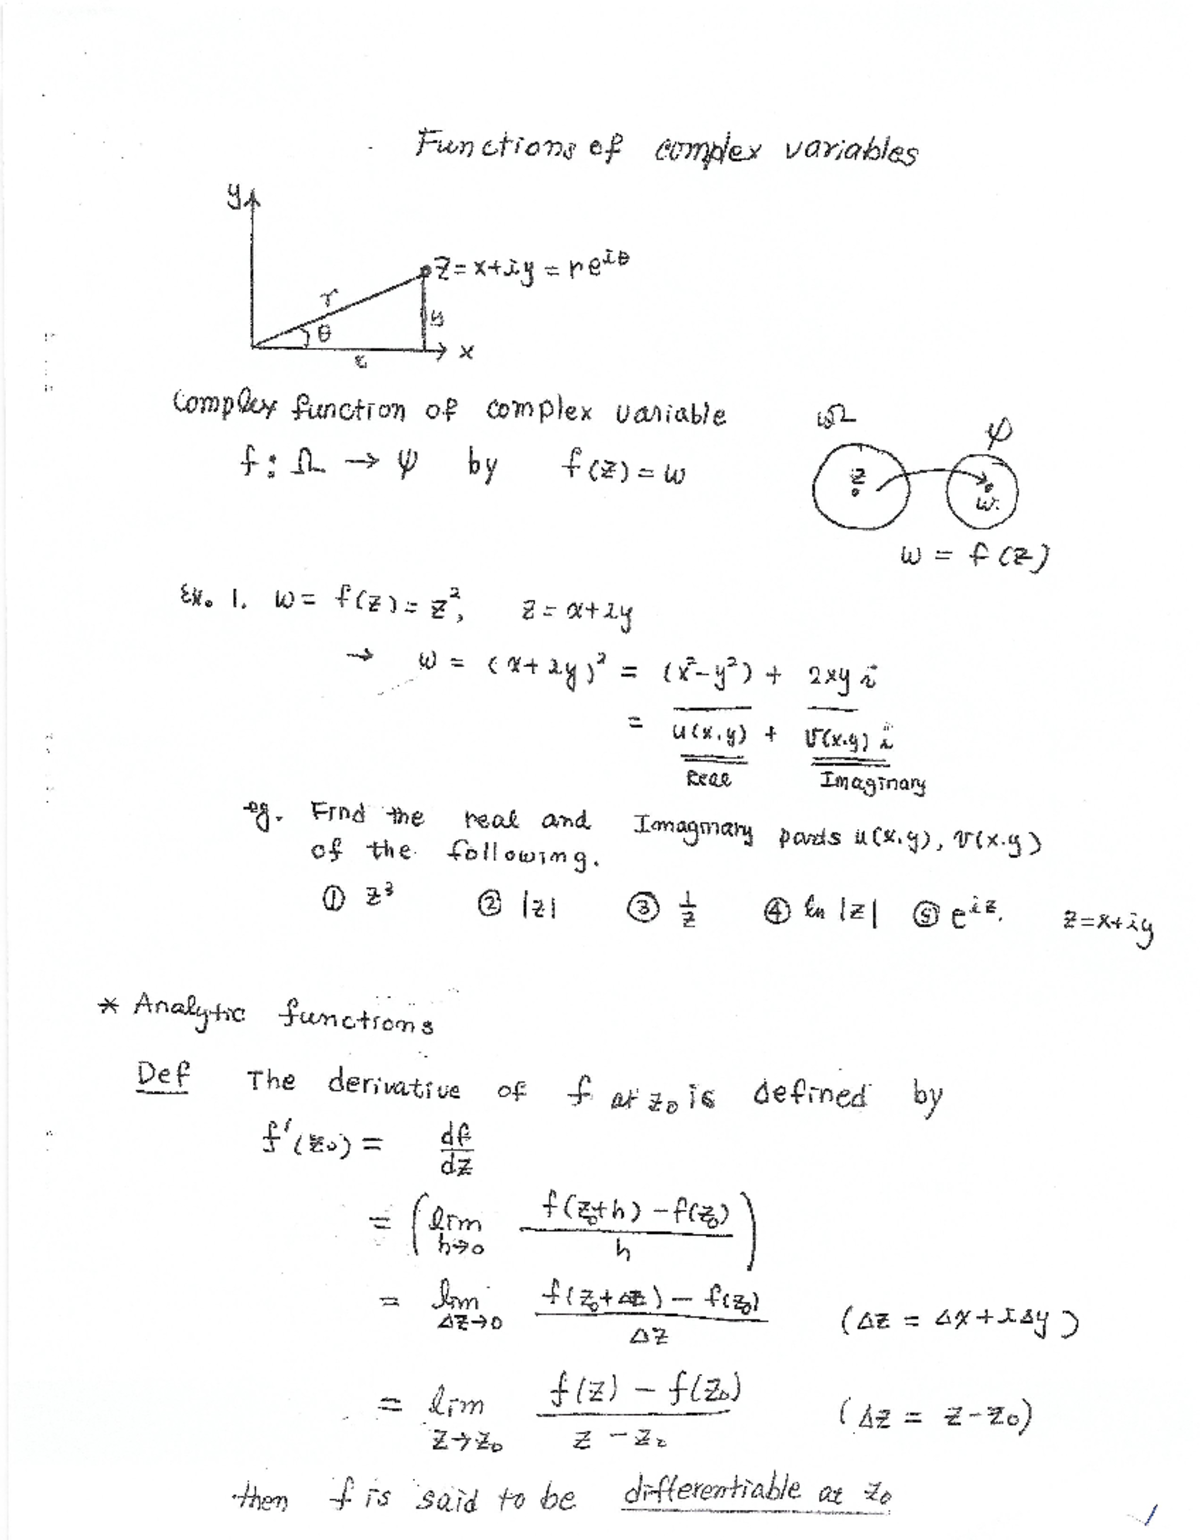 Functions of complex variables
y
z = x+iy = re^{iθ}
r
θ
y
x
x
Complex function of complex variable
Ω
ψ
f : Ω → ψ by f(z) = w
z
w
w = f(z)
Ex. 1. w = f(z) = z², z = x+iy
→ w = (x+iy)² = (x²-y²) + 2xy i
= u(x,y) + v(x,y) i
Real Imaginary
eg. Find the real and Imaginary parts u(x,y), v(x,y)
of the following.
① z³ ② |z| ③ 1/z ④ ln |z| ⑤ e^{iz}. z=x+iy
* Analytic functions
Def The derivative of f at z₀ is defined by
f'(z₀) = df/dz
= ( lim_{h→0} (f(z₀+h) - f(z₀))/h )
= lim_{Δz→0} (f(z₀+Δz) - f(z₀))/Δz (Δz = Δx+iΔy)
= lim_{z→z₀} (f(z) - f(z₀))/(z - z₀) (Δz = z-z₀)
then f is said to be differentiable at z₀